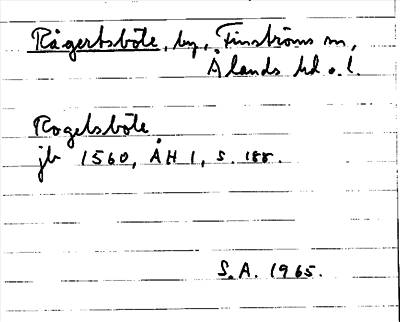 Rågertsböte, by, Finströms sn,
Ålands hd o. l.
Rogelsböte
jb 1560, ÅH 1, s. 188.
S.A. 1965.